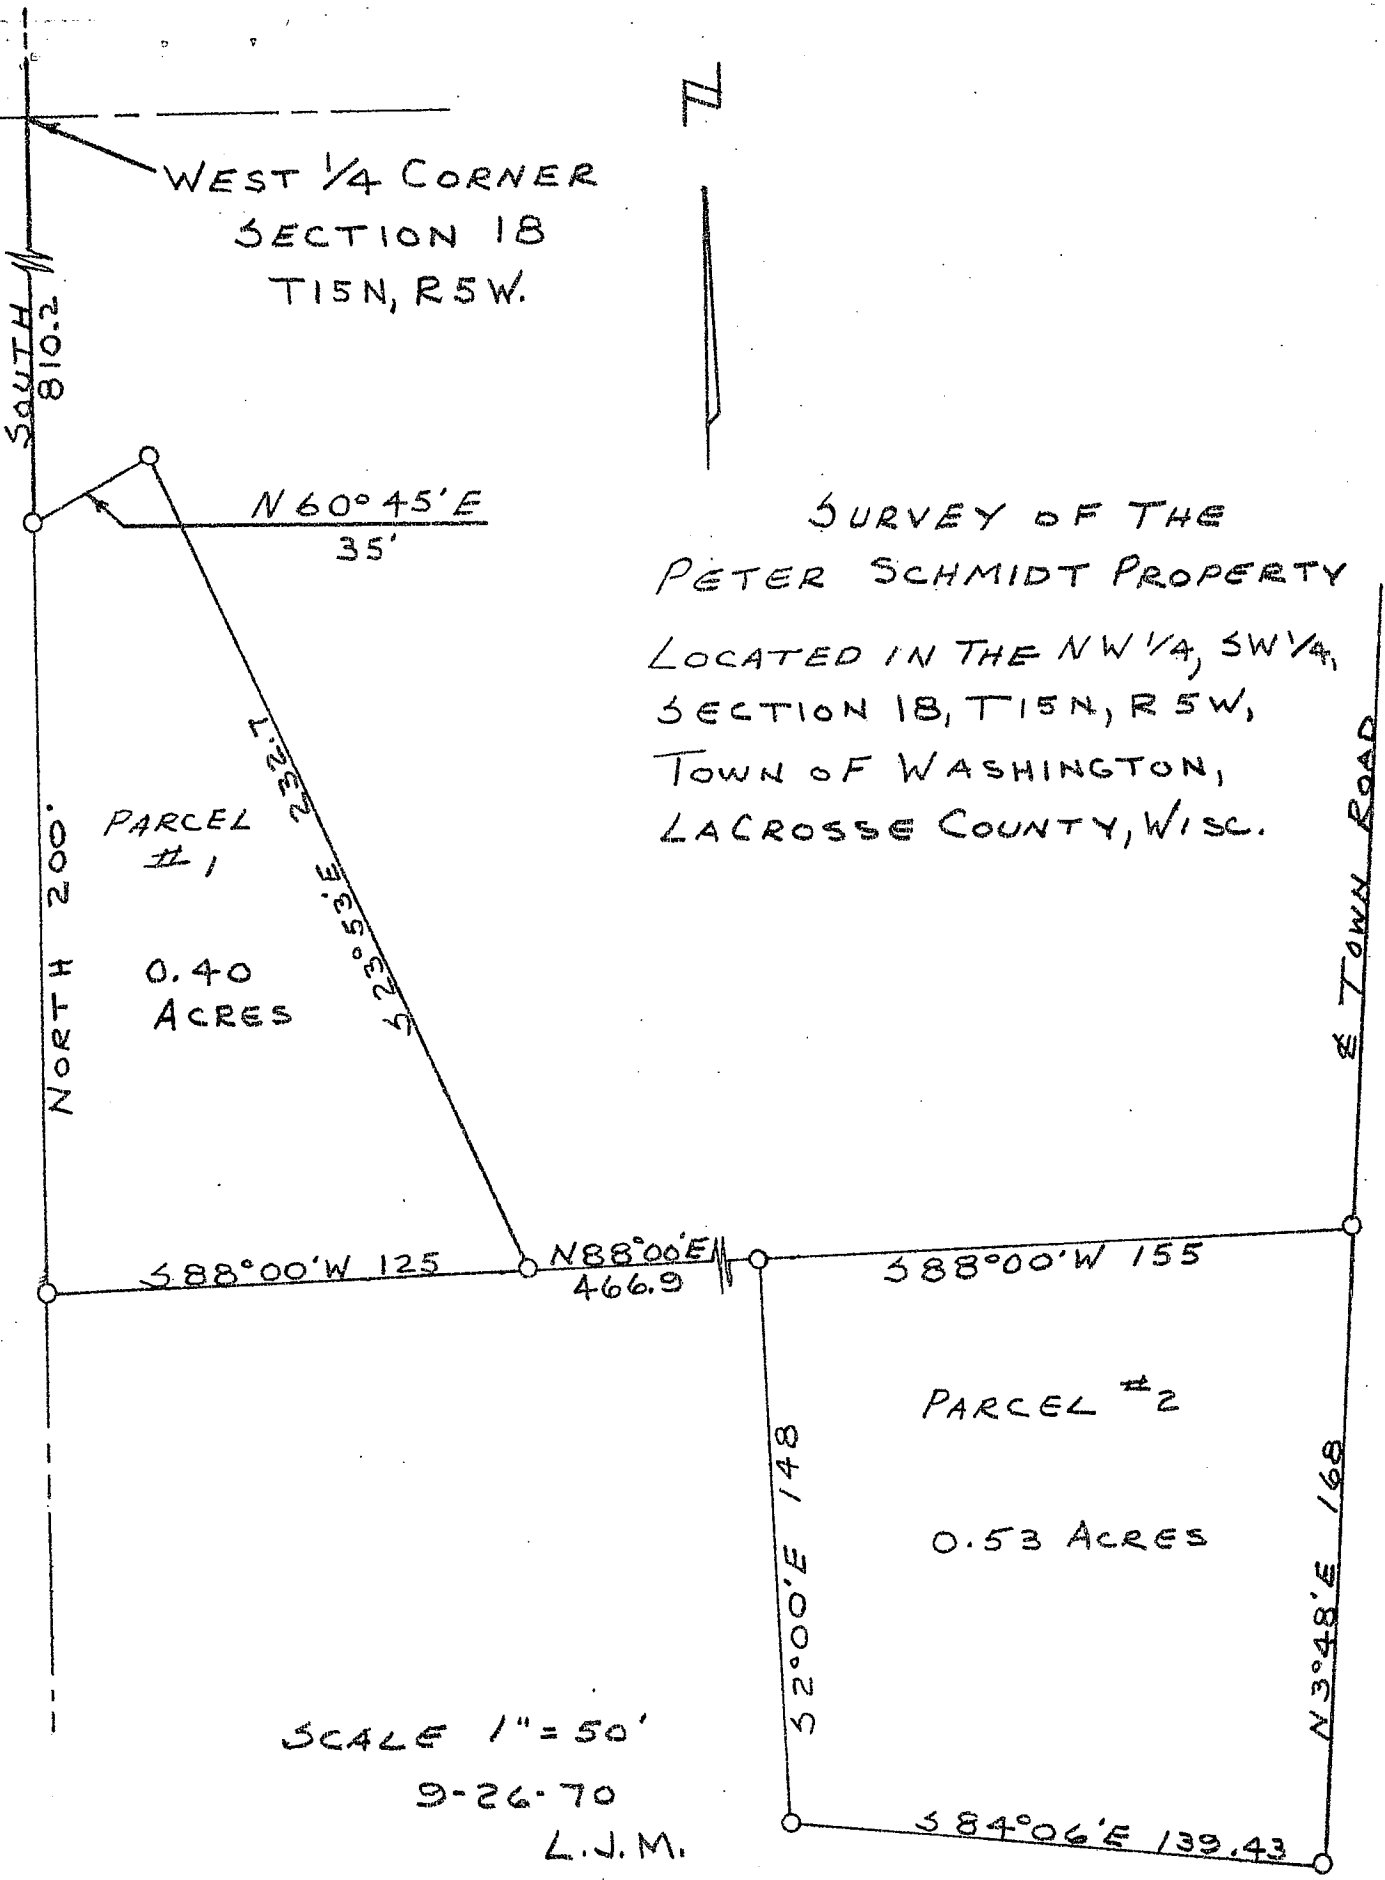 N
WEST 1/4 CORNER
SECTION 18
T15N, R5W.
SOUTH
810.2
N 60° 45' E
35'
SURVEY OF THE
PETER SCHMIDT PROPERTY
LOCATED IN THE NW 1/4, SW 1/4,
SECTION 18, T15N, R5W,
TOWN OF WASHINGTON,
LACROSSE COUNTY, WISC.
232.7
S 23° 53' E
PARCEL
# 1
0.40
ACRES
NORTH 200'
℄ TOWN ROAD
S 88° 00' W 125
N 88° 00' E
466.9
S 88° 00' W 155
PARCEL #2
0.53 ACRES
S 2° 00' E 148
N 3° 48' E 168
S 84° 06' E 139.43
SCALE 1" = 50'
9-26-70
L.J.M.